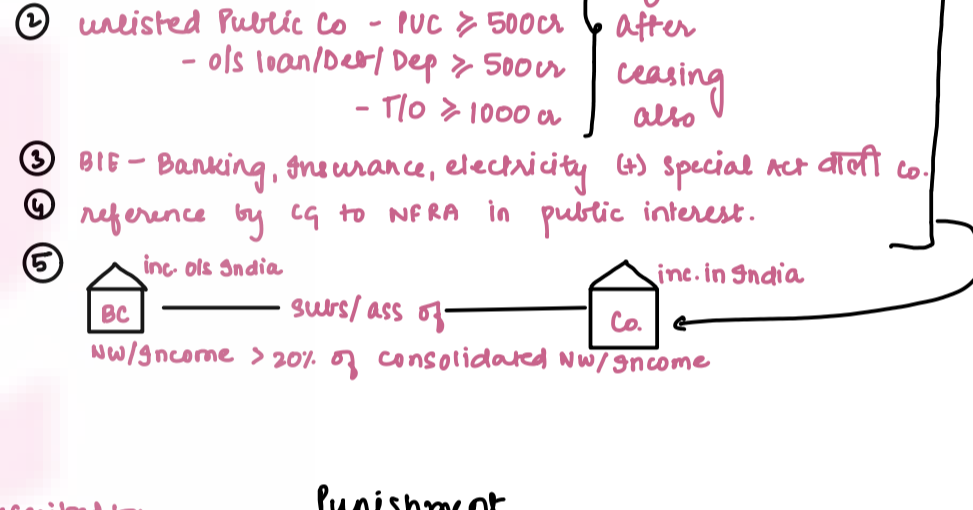 ② unlisted Public Co - PUC ⩾ 500cr
- o/s loan/Deb/Dep ⩾ 500cr
- T/O ⩾ 1000 cr
after
ceasing
also
③ BIE - Banking, Insurance, electricity (+) Special Act वाली Co.
④ reference by CG to NFRA in public interest.
⑤ inc. o/s India
inc. in India
BC subs/ass of Co.
NW/Income > 20% of consolidated NW/Income
Punishment